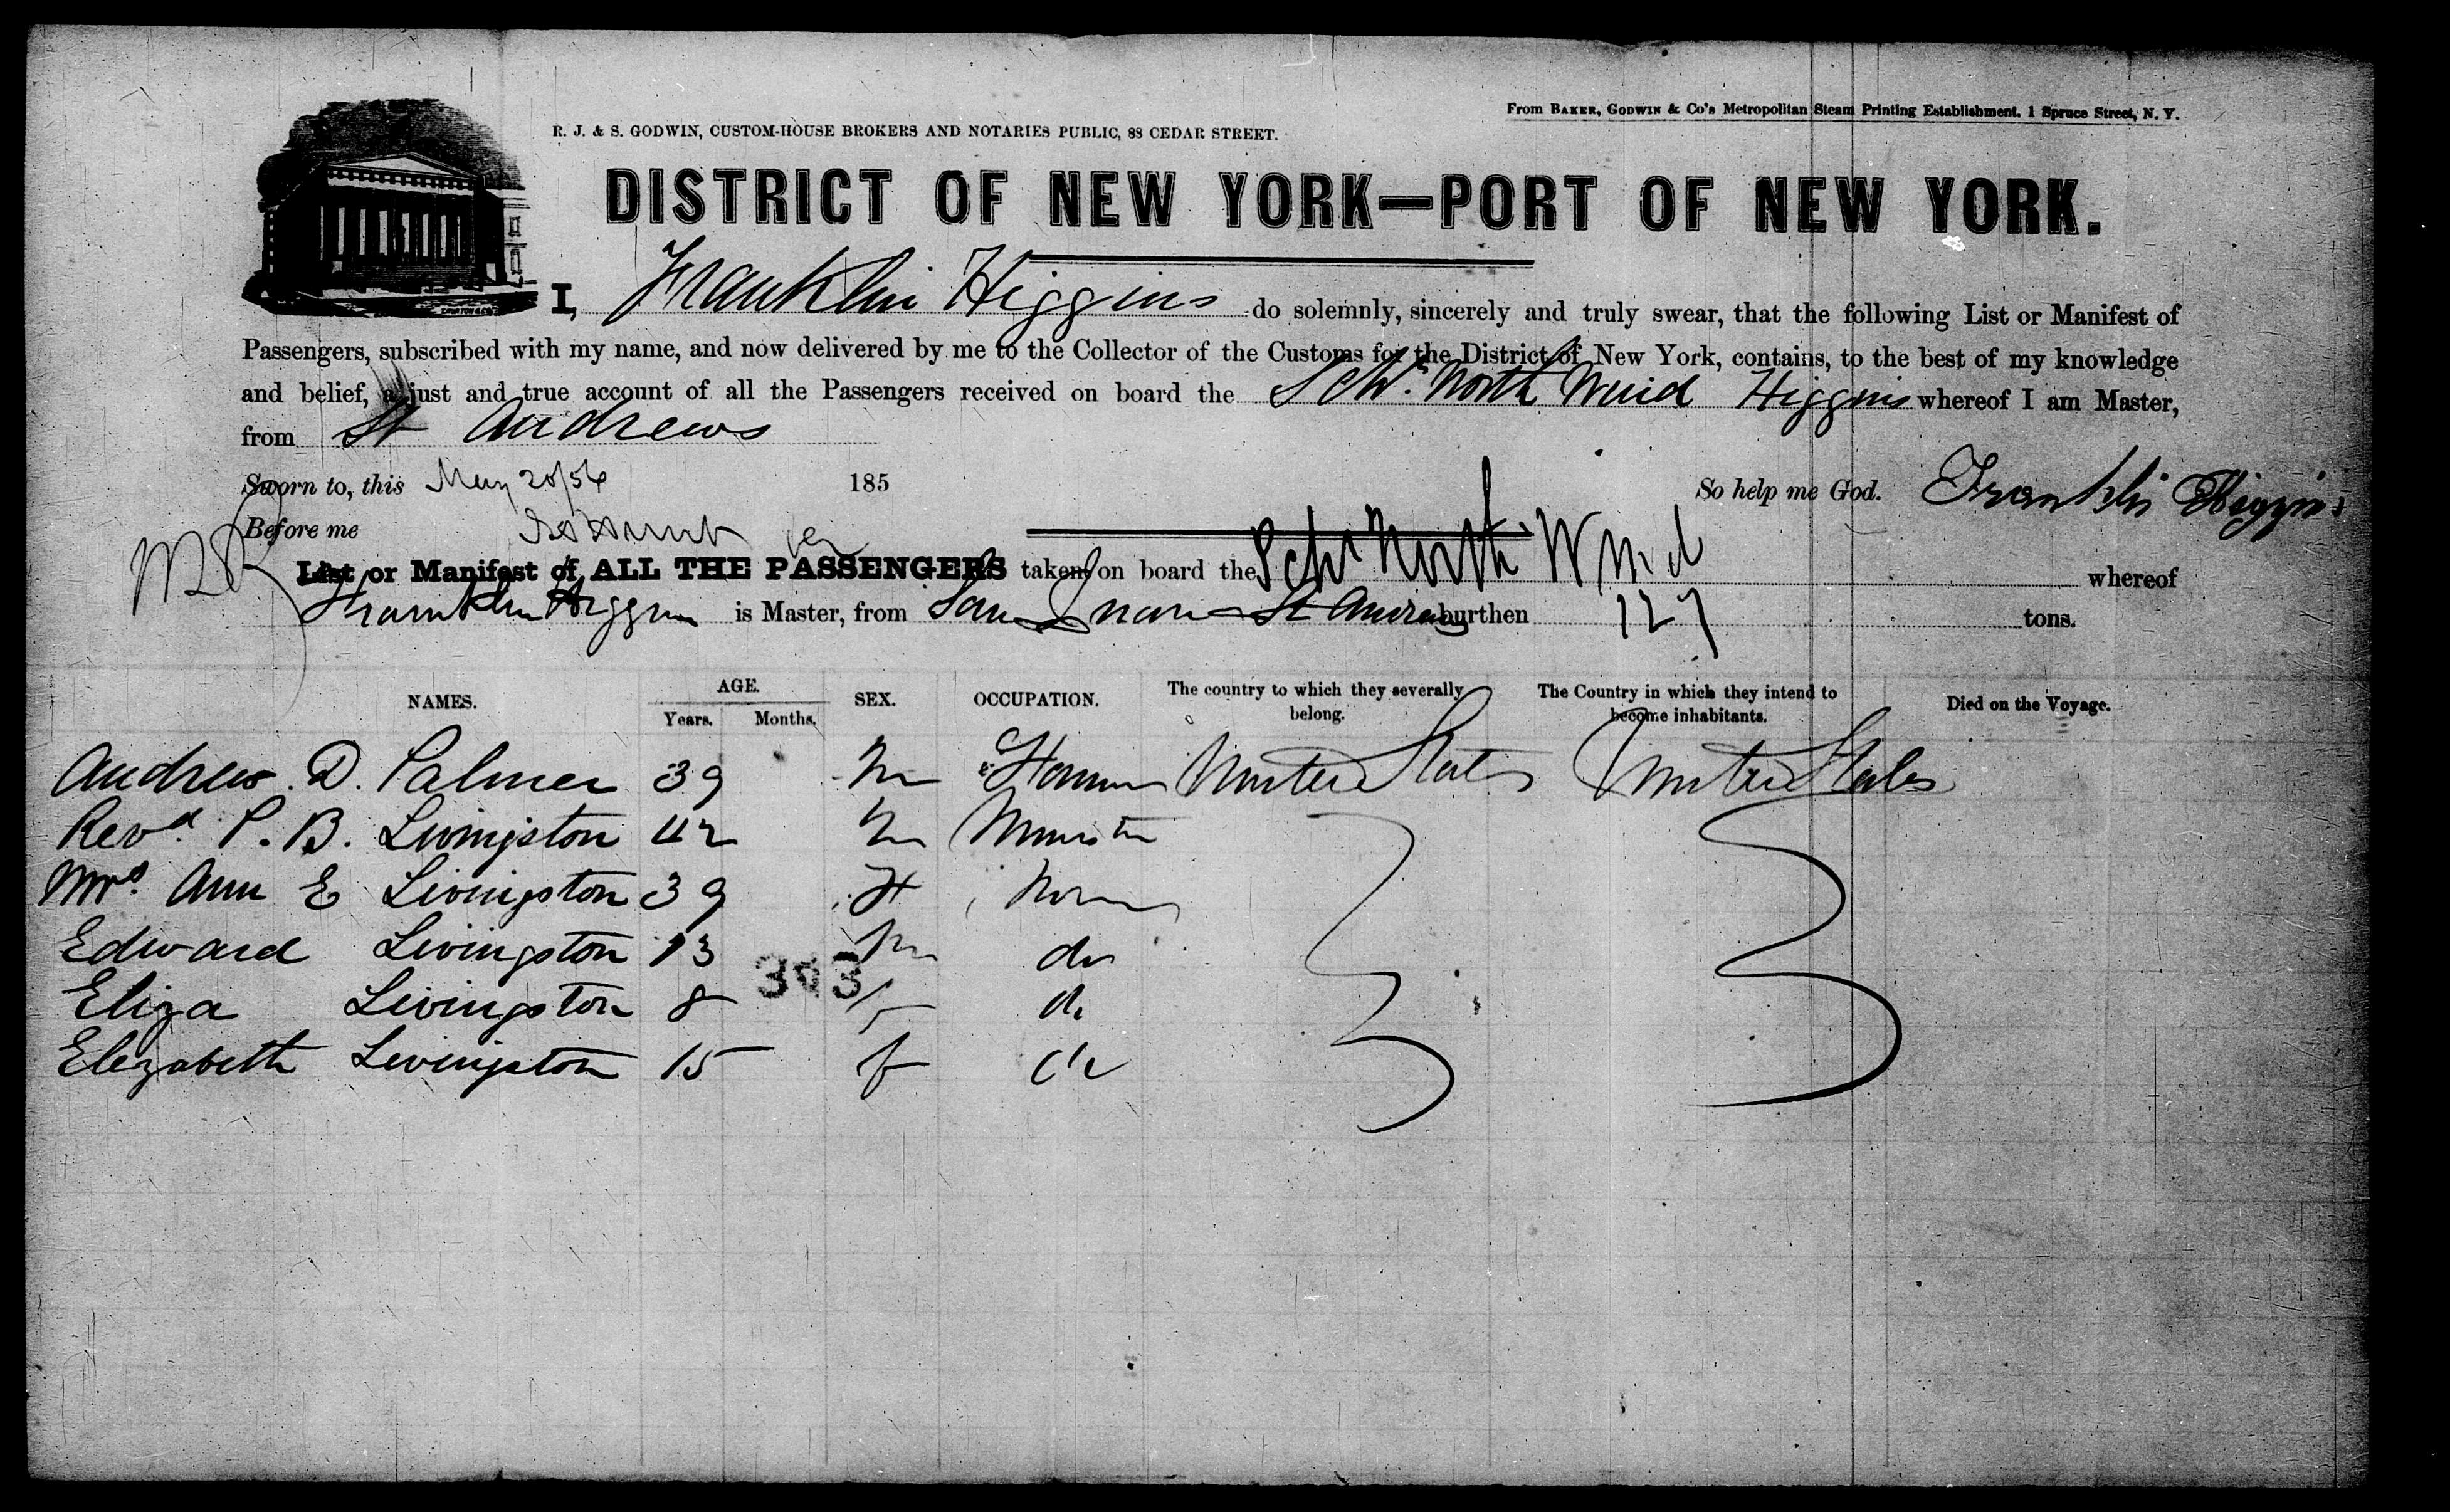 From BAKER, GODWIN & Co's Metropolitan Steam Printing Establishment, 1 Spruce Street, N. Y.
R. J. & S. GODWIN, CUSTOM-HOUSE BROKERS AND NOTARIES PUBLIC, 88 CEDAR STREET.
DISTRICT OF NEW YORK—PORT OF NEW YORK.
I, Franklin Higgins do solemnly, sincerely and truly swear, that the following List or Manifest of
Passengers, subscribed with my name, and now delivered by me to the Collector of the Customs for the District of New York, contains, to the best of my knowledge
and belief, a just and true account of all the Passengers received on board the Schr. North Wind Higgins whereof I am Master,
from St Andrews
Sworn to, this May 28/56 185 So help me God. Franklin Higgins
Before me
List or Manifest of ALL THE PASSENGERS taken on board the Schr North Wind whereof
Franklin Higgins is Master, from St Andrews burthen 127 tons.
NAMES. AGE. Years. Months. SEX. OCCUPATION. The country to which they severally belong. The Country in which they intend to become inhabitants. Died on the Voyage.
Andrew D. Palmer 39 M United States United States
Revd. P. B. Livingston 42 M Minister
Mrs. Ann E Livingston 39 F None
Edward Livingston 13 M do
303
Eliza Livingston 8 f do
Elezabeth Livingston 15 f do